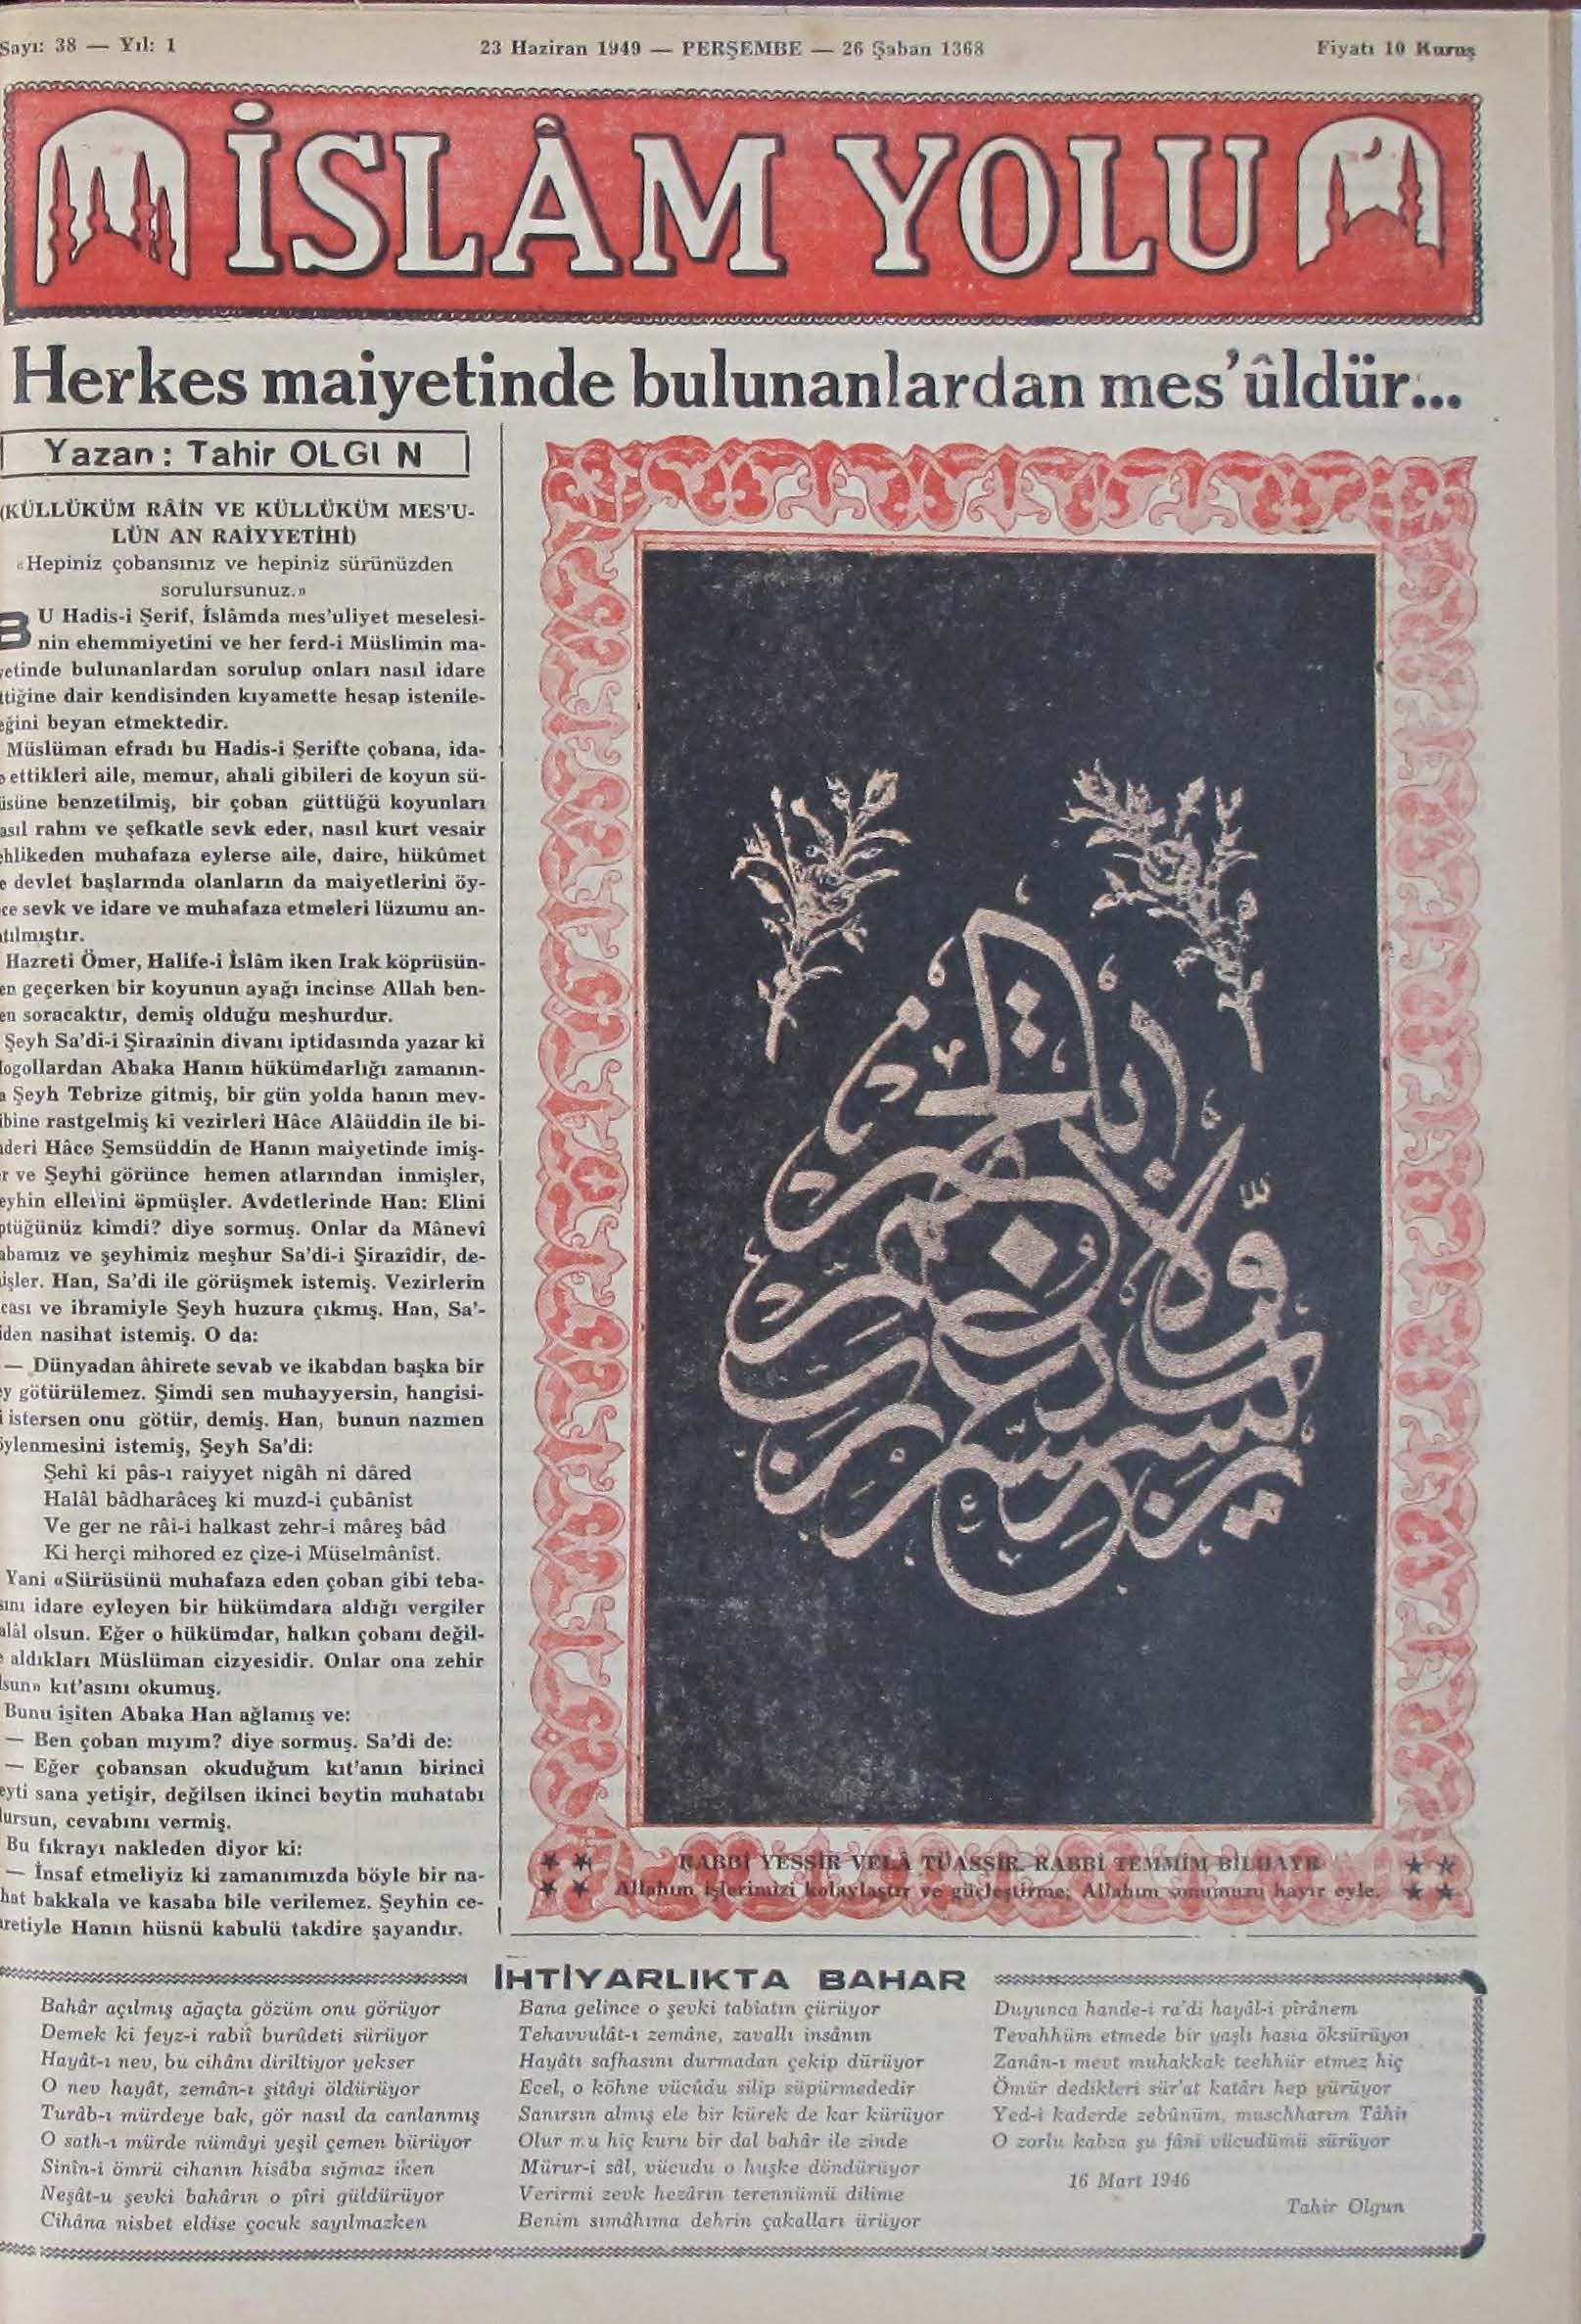 Sayı: 38 — Yıl: 1
23 Haziran 1949 — PERŞEMBE — 26 Şaban 1368
Fiyatı 10 Kuruş
İSLÂM YOLU
Herkes maiyetinde bulunanlardan mes'ûldür...
Yazan : Tahir OLGUN
(KÜLLÜKÜM RÂİN VE KÜLLÜKÜM MES'U-
LÜN AN RAİYYETİHİ)
«Hepiniz çobansınız ve hepiniz sürünüzden
sorulursunuz.»
BU Hadis-i Şerif, İslâmda mes'uliyet meselesi-
nin ehemmiyetini ve her ferd-i Müslimin ma-
yetinde bulunanlardan sorulup onları nasıl idare
ttiğine dair kendisinden kıyamette hesap istenile-
eğini beyan etmektedir.
Müslüman efradı bu Hadis-i Şerifte çobana, ida-
e ettikleri aile, memur, ahali gibileri de koyun sü-
üsüne benzetilmiş, bir çoban güttüğü koyunları
asıl rahm ve şefkatle sevk eder, nasıl kurt vesair
ehlikeden muhafaza eylerse aile, daire, hükûmet
e devlet başlarında olanların da maiyetlerini öy-
ce sevk ve idare ve muhafaza etmeleri lüzumu an-
atılmıştır.
Hazreti Ömer, Halife-i İslâm iken Irak köprüsün-
en geçerken bir koyunun ayağı incinse Allah ben-
en soracaktır, demiş olduğu meşhurdur.
Şeyh Sa'di-i Şirazînin divanı iptidasında yazar ki
Mogollardan Abaka Hanın hükümdarlığı zamanın-
a Şeyh Tebrize gitmiş, bir gün yolda hanın mev-
ibine rastgelmiş ki vezirleri Hâce Alâüddin ile bi-
aderi Hâce Şemsüddin de Hanın maiyetinde imiş-
r ve Şeyhi görünce hemen atlarından inmişler,
eyhin ellerini öpmüşler. Avdetlerinde Han: Elini
ptüğünüz kimdi? diye sormuş. Onlar da Mânevî
abamız ve şeyhimiz meşhur Sa'di-i Şirazîdir, de-
işler. Han, Sa'di ile görüşmek istemiş. Vezirlerin
cası ve ibramiyle Şeyh huzura çıkmış. Han, Sa'-
iden nasihat istemiş. O da:
— Dünyadan âhirete sevab ve ikabdan başka bir
ey götürülemez. Şimdi sen muhayyersin, hangisi-
i istersen onu götür, demiş. Han, bunun nazmen
öylenmesini istemiş, Şeyh Sa'di:
Şehî ki pâs-ı raiyyet nigâh ni dâred
Halâl bâdharâceş ki muzd-i çubânîst
Ve ger ne râi-i halkast zehr-i mâreş bâd
Ki herçi mihored ez çize-i Müselmânîst.
Yani «Sürüsünü muhafaza eden çoban gibi teba-
sını idare eyleyen bir hükümdara aldığı vergiler
alâl olsun. Eğer o hükümdar, halkın çobanı değil-
e aldıkları Müslüman cizyesidir. Onlar ona zehir
lsun» kıt'asını okumuş.
Bunu işiten Abaka Han ağlamış ve:
— Ben çoban mıyım? diye sormuş. Sa'di de:
— Eğer çobansan okuduğum kıt'anın birinci
eyti sana yetişir, değilsen ikinci beytin muhatabı
lursun, cevabını vermiş.
Bu fıkrayı nakleden diyor ki:
— İnsaf etmeliyiz ki zamanımızda böyle bir na-
hat bakkala ve kasaba bile verilemez. Şeyhin ce-
aretiyle Hanın hüsnü kabulü takdire şayandır.
رب يسر ولا تعسر رب تمم بالخير
RABBİ YESSİR VELÂ TÜASSİR. RABBİ TEMMİM BİLHAYR
Allahım işlerimizi kolaylaştır ve güçleştirme; Allahım sonumuzu hayır eyle.
İHTİYARLIKTA BAHAR
Bahâr açılmış ağaçta gözüm onu görüyor
Demek ki feyz-i rabiî burûdeti sürüyor
Hayât-ı nev, bu cihânı diriltiyor yekser
O nev hayât, zemân-ı şitâyi öldürüyor
Turâb-ı mürdeye bak, gör nasıl da canlanmış
O sath-ı mürde nümâyi yeşil çemen bürüyor
Sinîn-i ömrü cihanın hisâba sığmaz iken
Neşât-u şevki bahârın o pîri güldürüyor
Cihâna nisbet eldise çocuk sayılmazken
Bana gelince o şevki tabiatın çürüyor
Tehavvulât-ı zemâne, zavallı insânın
Hayâtı safhasını durmadan çekip dürüyor
Ecel, o köhne vücûdu silip süpürmededir
Sanırsın almış ele bir kürek de kar kürüyor
Olur mu hiç kuru bir dal bahâr ile zinde
Mürur-i sâl, vücudu o huşke döndürüyor
Verirmi zevk hezârın terennümü dilime
Benim sımâhıma dehrin çakalları ürüyor
Duyunca hande-i ra'di hayâl-i pîrânem
Tevahhüm etmede bir yaşlı hasta öksürüyor
Zanân-ı mevt muhakkak teehhür etmez hiç
Ömür dedikleri sür'at katârı hep yürüyor
Yed-i kaderde zebûnüm, musehharım Tâhir
O zorlu kabza şu fâni vücudümü sürüyor
16 Mart 1946
Tahir Olgun